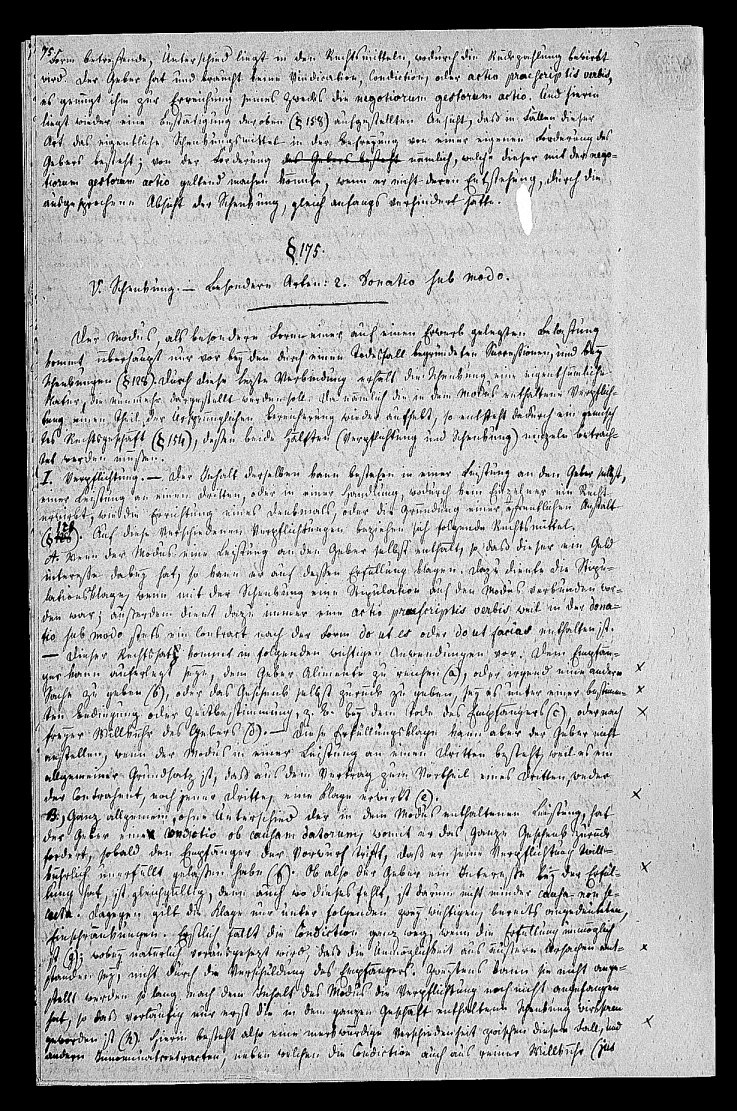 75.
Form betreffende, Unterschied liegt in den Rechtsmitteln, wodurch die Rückzahlung bewirkt
wird. Der Geber hat und braucht keine Vindication, Condiction, oder actio praescriptis verbis,
es genügt ihm zur Erreichung seines Zwecks die negotiorum gestorum actio. Und hierin
liegt wieder eine Bestätigung der oben (§ 158) aufgestellten Ansicht, daß in Fällen dieser
Art das eigentliche Schenkungsmittel in der Befreyung von einer eigenen Forderung des
Gebers besteht; von der Forderung des Gebers besteht nämlich, welche dieser mit der nego-
tiorum gestorum actio geltend machen könnte, wenn er nicht deren Entstehung, durch die
ausgesprochene Absicht der Schenkung, gleich anfangs verhindert hätte.
§ 175.
V. Schenkung. — Besondere Arten: 2. Donatio sub modo.
Der Modus, als besondere Form einer auf einen Erwerb gelegten Belastung
kommt überhaupt nur vor bey den durch einen Todesfall begründeten Successionen, und bey
Schenkungen (§ 128). Durch diese letzte Verbindung erhält die Schenkung eine eigenthümliche
Natur, die nunmehr dargestellt werden soll. Da nämlich die in dem Modus enthaltene Verpflich-
tung einen Theil der ursprünglichen Bereicherung wieder aufhebt, so entsteht dadurch ein gemisch-
tes Rechtsgeschäft (§ 154), dessen beide Hälften (Verpflichtung und Schenkung) einzeln betrach-
tet werden müssen.
I. Verpflichtung. — Der Inhalt derselben kann bestehen in einer Leistung an den Geber selbst,
einer Leistung an einen Dritten, oder in einer Handlung, wodurch kein Einzelner ein Recht
erwirbt, wie die Errichtung eines Denkmals, oder die Gründung einer öffentlichen Anstalt
(§ 128). Auf diese verschiedenen Verpflichtungen beziehen sich folgende Rechtsmittel.
A. Wenn der Modus eine Leistung an den Geber selbst enthält, so daß dieser ein Geld
interesse dabey hat, so kann er auf dessen Erfüllung klagen. Dazu diente die Stipu-
lationsklage, wenn mit der Schenkung eine Stipulation auf den Modus verbunden wor-
den war; außerdem dient dazu immer eine actio praescriptis verbis weil in der dona-
tio sub modo stets ein Contract nach der Form do ut des oder do ut facias enthalten ist.
— Dieser Rechtssatz kommt in folgenden wichtigen Anwendungen vor. Dem Empfän-
ger kann auferlegt seyn, dem Geber Alimente zu reichen (a), oder irgend eine andere
Sache zu geben (b), oder das Geschenk selbst zurück zu geben, sey es unter einer bestimm-
ten Bedingung oder Zeitbestimmung, z. B. bey dem Tode des Empfängers (c), oder nach
freyer Willkühr des Gebers (d). — Diese Erfüllungsklage kann aber der Geber nicht
anstellen, wenn der Modus in einer Leistung an einen Dritten besteht, weil es ein
allgemeiner Grundsatz ist, daß aus dem Vertrag zum Vortheil eines Dritten, weder
der Contrahent, noch jener Dritte, eine Klage erwirbt (e).
B. Ganz allgemein, ohne Unterschied der in dem Modus enthaltenen Leistung, hat
der Geber eine condictio ob causam datorum, womit er das ganze Geschenk zurück
fordert, sobald den Empfänger der Vorwurf trifft, daß er seine Verpflichtung will-
kührlich unerfüllt gelassen habe (f). Ob also der Geber ein Interesse bey der Erfül-
lung hat, ist gleichgültig, denn auch wo dieses fehlt, ist darum nicht minder causa non se-
cuta. Dagegen gilt die Klage nur unter folgenden ganz wichtigen, bereits angedeuteten,
Einschränkungen. Erstlich fällt die Condiction ganz weg, wenn die Erfüllung unmöglich
ist (g); wobey natürlich vorausgesetzt wird, daß die Unmöglichkeit aus äußeren Ursachen ent-
standen sey, nicht durch die Verschuldung des Empfängers. Zweytens kann sie nicht ange-
stellt werden so lang nach dem Inhalt des Modus die Verpflichtung noch nicht angefangen
hat, so daß vorläufig nur erst die in dem ganzen Geschäft enthaltene Schenkung wirksam
geworden ist (h). Hierin besteht also eine merkwürdige Verschiedenheit zwischen diesem Fall, und
andern Innominatcontracten, neben welchen die Condiction auch aus reiner Willkühr (jus